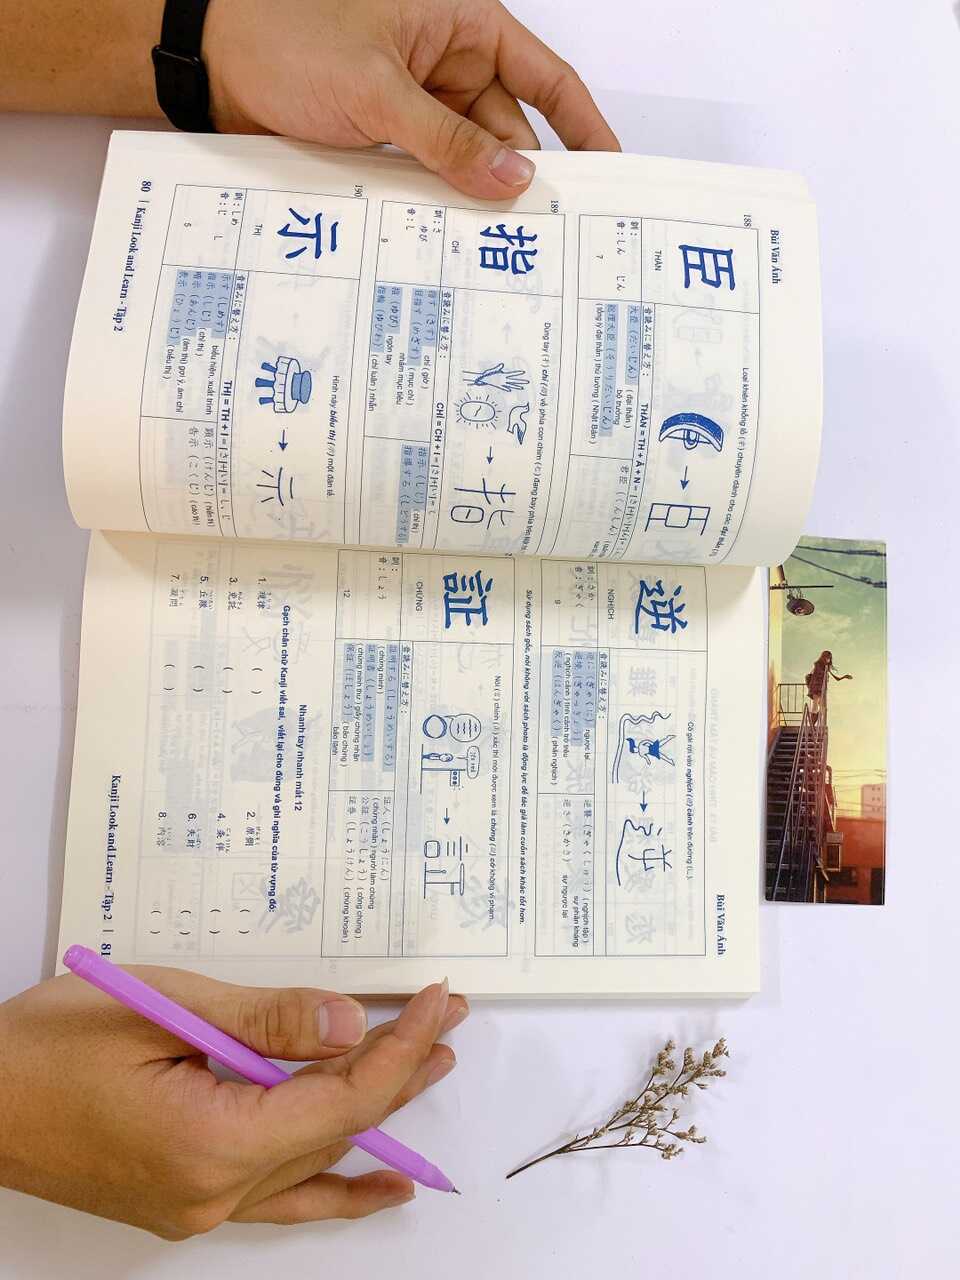 Bùi Văn Ánh
188
臣
THẦN
訓:
音:しん じん
7
Loại khiên khổng lồ (そ) chuyên dành cho các đại thần (臣).
音読みに替え方:
THẦN = TH + Â + N =
大臣(だいじん)
( đại thần )
bộ trưởng
総理大臣(そうりだいじん)
( tổng lý đại thần ) thủ tướng ( Nhật Bản )
君臣(くんしん)
189
指
CHỈ
訓:さ
ゆび
音:し
9
Dùng tay (扌) chỉ (指) về phía con chim (ヒ) đang bay phía trên
音読みに替え方:
CHỈ = CH + I =
指す(さす) chỉ ( giờ )
目指す(めざす) ( mục chỉ )
nhắm mục tiêu
指(ゆび) ngón tay
指輪(ゆびわ) ( chỉ luân ) nhẫn
指示(しじ) (chỉ thị )
指導する(しどうする)
190
示
THỊ
訓:しめ
音:じ し
5
Hình này biểu thị (示) một đàn tế.
音読みに替え方:
THỊ = TH + I = [さ]+[い] = し、じ
示す(しめす) biểu hiện, xuất trình
指示(しじ) (chỉ thị )
暗示(あんじ) (ám thị) gợi ý, ám chỉ
表示(ひょうじ) ( biểu thị )
顕示(けんじ) (hiển thị)
告示(こくじ) (cáo thị)
80 | Kanji Look and Learn - Tập 2
Bùi Văn Ánh
逆
NGHỊCH
訓:さか
音:ぎゃく
9
Cô gái rơi vào nghịch (逆) cảnh trên đường (辶).
音読みに替え方:
逆に(ぎゃくに) ngược lại
逆境(ぎゃっきょう)
( nghịch cảnh ) tình cảnh trớ trêu
反逆(はんぎゃく) ( phản nghịch )
逆襲(ぎゃくしゅう) ( nghịch tập )
sự phản kháng
逆さ(さかさ) sự ngược lại
Sử dụng sách gốc, nói không với sách photo là động lực để tác giả làm cuốn sách khác tốt hơn.
証
CHỨNG
訓:
音:しょう
12
Nói (言) chính (正) xác thì mới được xem là chứng (証) cớ không vi phạm.
音読みに替え方:
証明する(しょうめいする)
( chứng minh )
証明書(しょうめいしょ)
( chứng minh thư ) giấy chứng nhận
保証(ほしょう) ( bảo chứng )
bảo lãnh
証人(しょうにん)
( chứng nhân ) người làm chứng
公証(こうしょう) ( công chứng )
証券(しょうけん) ( chứng khoán )
Nhanh tay nhanh mắt 12
Gạch chân chữ Kanji viết sai, viết lại cho đúng và ghi nghĩa của từ vựng đó:
1. ( ) 2. ( )
3. ( ) 4. ( )
5. ( ) 6. ( )
7. ( ) 8. ( )
Kanji Look and Learn - Tập 2 | 81